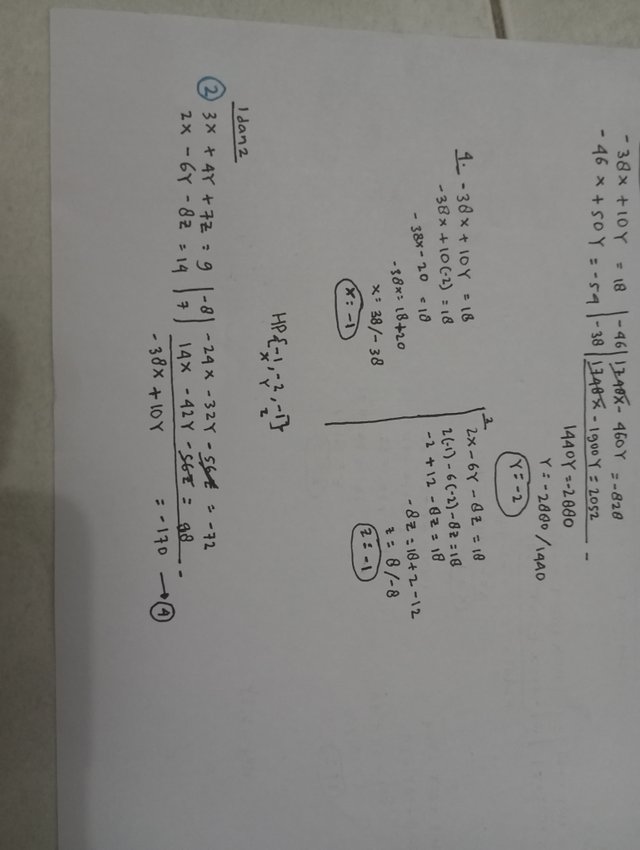 -38x + 10Y = 18 |-46| 1748x - 460Y = -828
-46x + 50Y = -54 |-38| 1748x - 1900Y = 2052 -
1440Y = -2880
Y = -2880/1440
Y = -2
4. -38x + 10Y = 18
-38x + 10(-2) = 18
-38x - 20 = 18
-38x = 18+20
x = 38/-38
x = -1
2 2x - 6Y - 8z = 18
2(-1) - 6(-2) - 8z = 18
-2 + 12 - 8z = 18
-8z = 18+2-12
z = 8/-8
z = -1
HP{-1, -2, -1}
x Y z
1 dan 2
② 3x + 4Y + 7z = 9 |-8| -24x - 32Y - 56z = -72
2x - 6Y - 8z = 14 |7| 14x - 42Y - 56z = 98 -
-38x + 10Y = -170 → ④